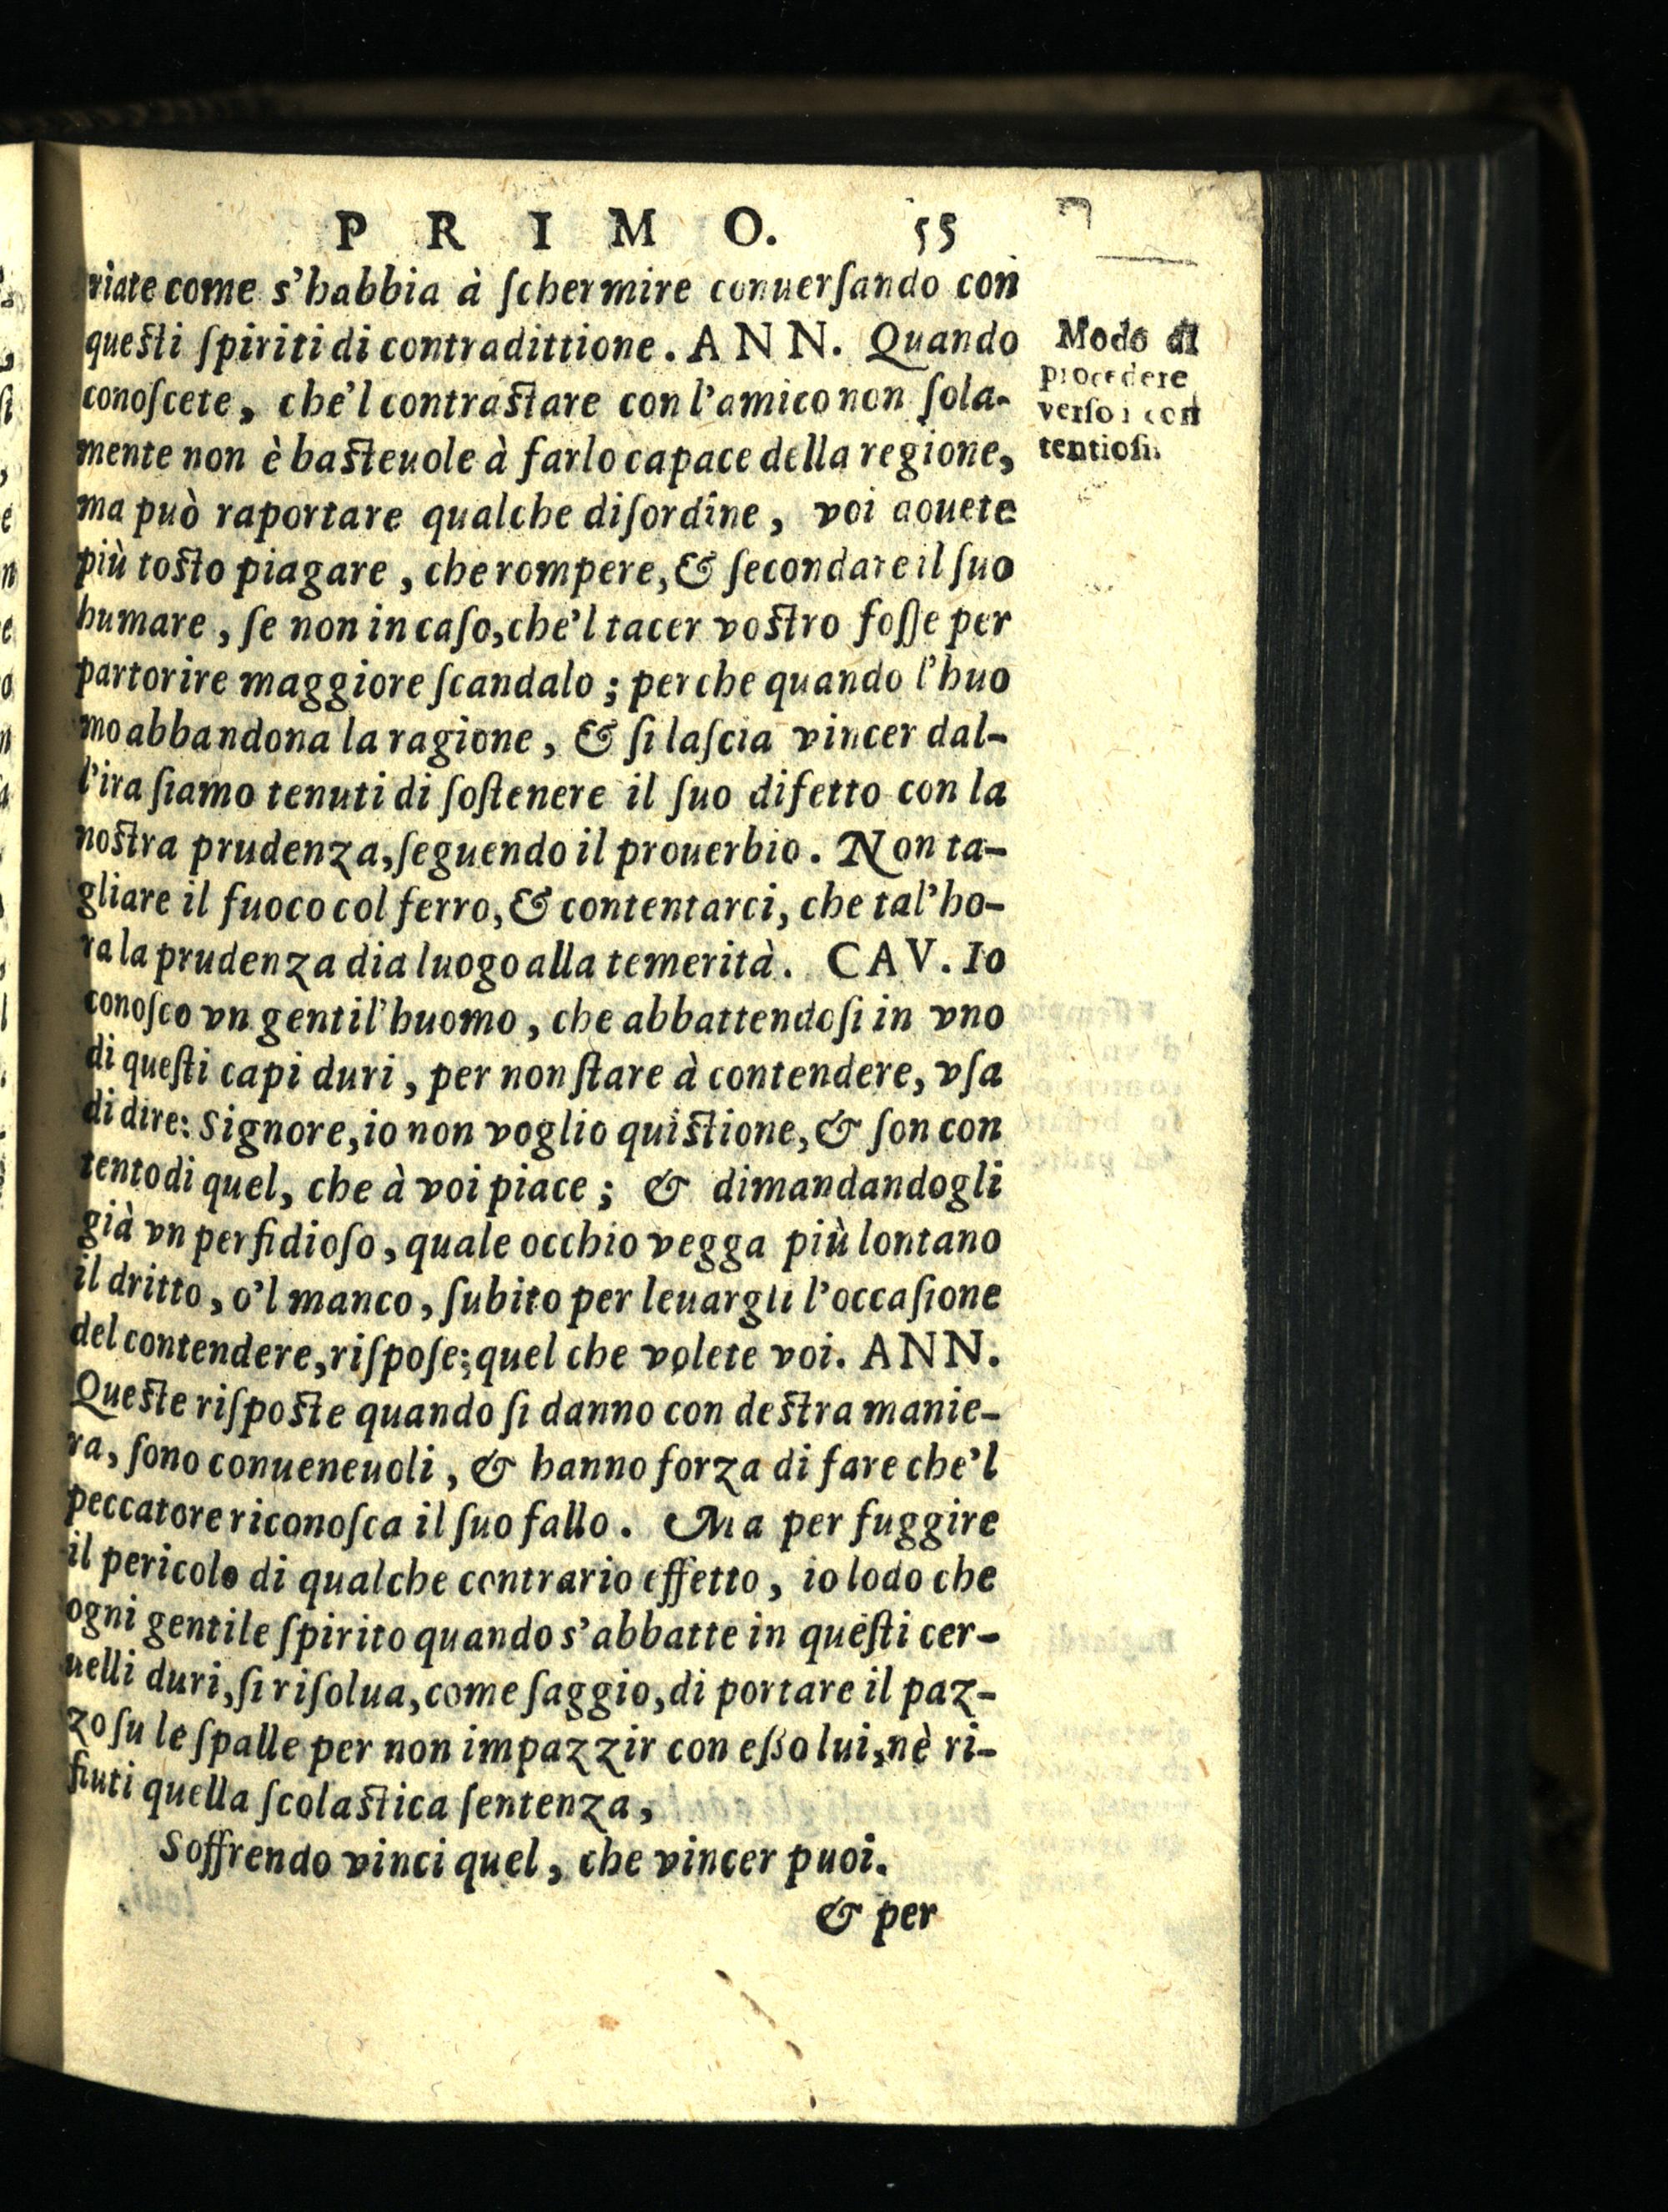 PRIMO. 55
riate come s'habbia à ſchermire conuerſando con
queſti ſpiriti di contradittione. ANN. Quando
conoſcete, che'l contraſtare con l'amico non ſola-
mente non è baſteuole à farlo capace della regione,
ma può raportare qualche diſordine, voi aouete
più toſto piagare, che rompere, & ſecondare il ſuo
humare, ſe non in caſo, che'l tacer voſtro foſſe per
partorire maggiore ſcandalo; perche quando l'huo
mo abbandona la ragione, & ſi laſcia vincer dal-
l'ira ſiamo tenuti di ſoſtenere il ſuo difetto con la
noſtra prudenza, ſeguendo il prouerbio. Non ta-
gliare il fuoco col ferro, & contentarci, che tal'ho-
ra la prudenza dia luogo alla temerità. CAV. Io
conoſco vn gentil'huomo, che abbattendoſi in vno
di queſti capi duri, per non ſtare à contendere, vſa
di dire: Signore, io non voglio quiſtione, & ſon con
tento di quel, che à voi piace; & dimandandogli
già vn perfidioſo, quale occhio vegga più lontano
il dritto, o'l manco, ſubito per leuargli l'occaſione
del contendere, riſpoſe; quel che volete voi. ANN.
Queſte riſpoſte quando ſi danno con deſtra manie-
ra, ſono conueneuoli, & hanno forza di fare che'l
peccatore riconoſca il ſuo fallo. Ma per fuggire
il pericolo di qualche contrario effetto, io lodo che
ogni gentile ſpirito quando s'abbatte in queſti cer-
uelli duri, ſi riſolua, come ſaggio, di portare il paz-
zo ſu le ſpalle per non impazzir con eſſo lui, nè ri-
fiuti quella ſcolaſtica ſentenza,
Soffrendo vinci quel, che vincer puoi.
& per
Modo di
procedere
verſo i con
tentioſi.